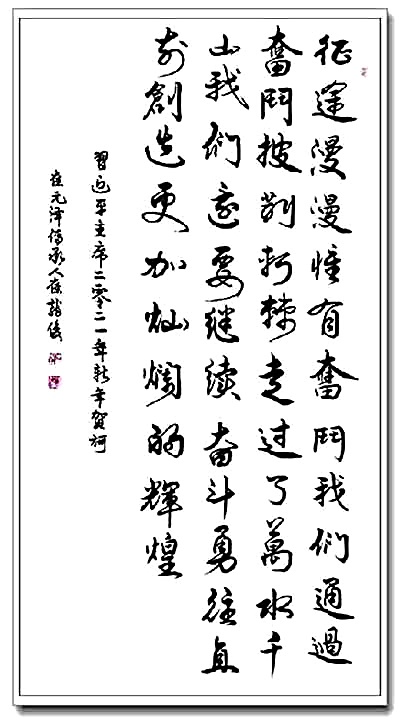 征途漫漫惟有奮鬥我們通過
奮鬥披荆斬棘走過了萬水千
山我們還要继续奋斗勇往直
前創造更加灿爛的輝煌
習近平主席二零二一年新年賀詞
元泽传承人